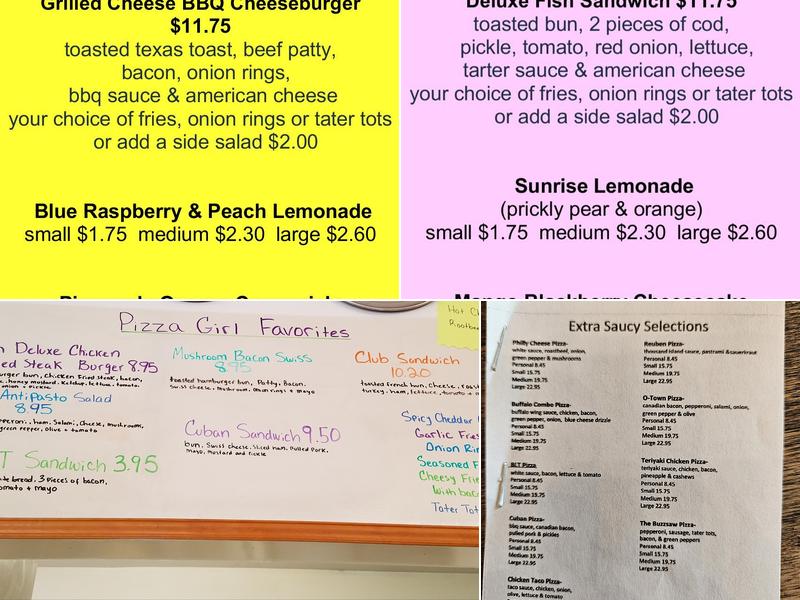 Grilled Cheese BBQ Cheeseburger
$11.75
toasted texas toast, beef patty,
bacon, onion rings,
bbq sauce & american cheese
your choice of fries, onion rings or tater tots
or add a side salad $2.00
Blue Raspberry & Peach Lemonade
small $1.75 medium $2.30 large $2.60
Deluxe Fish Sandwich $11.75
toasted bun, 2 pieces of cod,
pickle, tomato, red onion, lettuce,
tarter sauce & american cheese
your choice of fries, onion rings or tater tots
or add a side salad $2.00
Sunrise Lemonade
(prickly pear & orange)
small $1.75 medium $2.30 large $2.60
Mango Blackberry Cheesecake
Pizza Girl Favorites
Deluxe Chicken
ed Steak Burger 8.95
burger bun, Chicken Fried Steak, bacon,
honey mustard, Ketchup, lettuce, tomato,
onion + pickle
AntiPasto Salad
8.95
ham, Salami, Cheese, mushrooms,
green pepper, Olive + tomato
T Sandwich 3.95
te bread, 3 Pieces of bacon,
tomato + mayo
Mushroom Bacon Swiss
8.95
toasted hamburger bun, Patty, Bacon,
Swiss cheese, Mushroom, Onion rings + mayo
Cuban Sandwich 9.50
bun, Swiss cheese, Sliced ham, Pulled Pork,
Mayo, Mustard and Pickle
Hot C
Rootbee
Club Sandwich
10.20
toasted french bun, Cheese,
turkey, ham, lettuce, tomato +
Spicy Cheddar
Garlic Fries
Onion Rin
Seasoned F
Cheesy Frie
With bac
Tater Tot
Extra Saucy Selections
Philly Cheese Pizza-
white sauce, roastbeef, onion,
green pepper & mushrooms
Personal 8.45
Small 15.75
Medium 19.75
Large 22.95
Buffalo Combo Pizza-
buffalo wing sauce, chicken, bacon,
green pepper, onion, blue cheese drizzle
Personal 8.45
Small 15.75
Medium 19.75
Large 22.95
BLT Pizza
white sauce, bacon, lettuce & tomato
Personal 8.45
Small 15.75
Medium 19.75
Large 22.95
Cuban Pizza-
bbq sauce, canadian bacon,
pulled pork & pickles
Personal 8.45
Small 15.75
Medium 19.75
Large 22.95
Chicken Taco Pizza-
taco sauce, chicken, onion,
olive, lettuce & tomato
Reuben Pizza-
thousand island sauce, pastrami & sauerkraut
Personal 8.45
Small 15.75
Medium 19.75
Large 22.95
O-Town Pizza-
canadian bacon, pepperoni, salami, onion,
green pepper & olive
Personal 8.45
Small 15.75
Medium 19.75
Large 22.95
Teriyaki Chicken Pizza-
teriyaki sauce, chicken, bacon,
pineapple & cashews
Personal 8.45
Small 15.75
Medium 19.75
Large 22.95
The Buzzsaw Pizza-
pepperoni, sausage, tater tots,
bacon, & green peppers
Personal 8.45
Small 15.75
Medium 19.75
Large 22.95